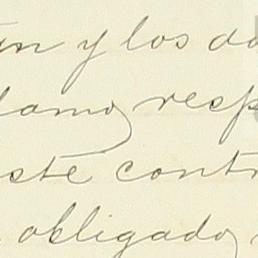 y los do
lamo, resp
este contr
obligado,